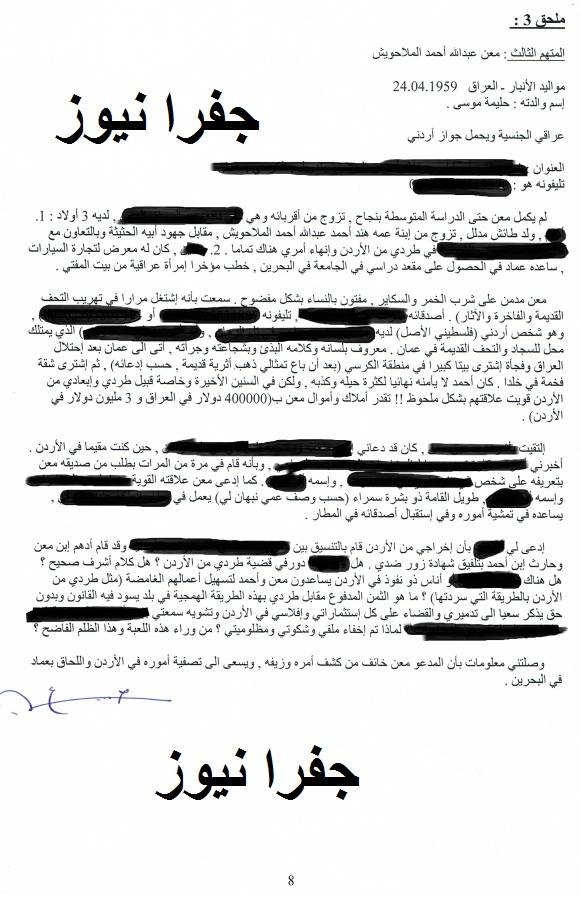 ملحق 3 :
المتهم الثالث : معن عبدالله أحمد الملاحويش
مواليد الأنبار - العراق 24.04.1959
إسم والدته : حليمة موسى .
جفرا نيوز
عراقي الجنسية ويحمل جواز أردني
العنوان
تليفونه هو :
لم يكمل معن حتى الدراسة المتوسطة بنجاح , تزوج من أقربائه وهي , لديه 3 أولاد : 1.
, ولد طائش مدلل , تزوج من إبنة عمه هند أحمد عبدالله أحمد الملاحويش , مقابل جهود أبيه الحثيثة وبالتعاون مع
في طردي من الأردن وإنهاء أمري هناك تماما . 2. , كان له معرض لتجارة السيارات
, ساعده عماد في الحصول على مقعد دراسي في الجامعة في البحرين , خطب مؤخرا إمرأة عراقية من بيت المفتي .
معن مدمن على شرب الخمر والسكاير , مفتون بالنساء بشكل مفضوح . سمعت بأنه إشتغل مرارا في تهريب التحف
القديمة والفاخرة والآثار) . أصدقائه , تليفونه أو ,
وهو شخص أردني (فلسطيني الأصل) لديه , و الذي يمتلك
محل للسجاد والتحف القديمة في عمان . معروف بلسانه وكلامه البذئ وبشجاعته وجرأته , أتى الى عمان بعد إحتلال
العراق وفجأة إشترى بيتا كبيرا في منطقة الكرسي (بعد أن باع تمثالي ذهب أثرية قديمة , حسب إدعائه) , ثم إشترى شقة
فخمة في خلدا . كان أحمد لا يأمنه نهائيا لكثرة حيله وكذبه , ولكن في السنين الأخيرة وخاصة قبيل طردي وإبعادي من
الأردن قويت علاقتهم بشكل ملحوظ !! تقدر أملاك وأموال معن ب(400000 دولار في العراق و 3 مليون دولار في
الأردن) .
إلتقيت , كان قد دعاني , حين كنت مقيما في الأردن .
أخبرني , وبأنه قام في مرة من المرات بطلب من صديقه معن
بتعريفه على شخص , وإسمه . كما إدعى معن علاقته القوية
وإسمه , طويل القامة ذو بشرة سمراء (حسب وصف عمي نبهان لي) يعمل في ,
يساعده في تمشية أموره وفي إستقبال أصدقائه في المطار .
إدعى لي بأن إخراجي من الأردن قام بالتنسيق بين وقد قام أدهم إبن معن
وحارث إبن أحمد بتلفيق شهادة زور ضدي . هل دور في قضية طردي من الأردن ؟ هل كلام أشرف صحيح ؟
هل هناك أو أناس ذو نفوذ في الأردن يساعدون معن وأحمد لتسهيل أعمالهم الغامضة (مثل طردي من
الأردن بالطريقة التي سردتها) ؟ ما هو الثمن المدفوع مقابل طردي بهذه الطريقة الهمجية في بلد يسود فيه القانون وبدون
حق يذكر سعيا الى تدميري والقضاء على كل إستثماراتي وإفلاسي في الأردن وتشويه سمعتي
لماذا تم إخفاء ملفي وشكوتي ومظلوميتي ؟ من وراء هذه اللعبة وهذا الظلم الفاضح ؟
وصلتني معلومات بأن المدعو معن خائف من كشف أمره وزيفه , ويسعى الى تصفية أموره في الأردن واللحاق بعماد
في البحرين .
جفرا نيوز
8